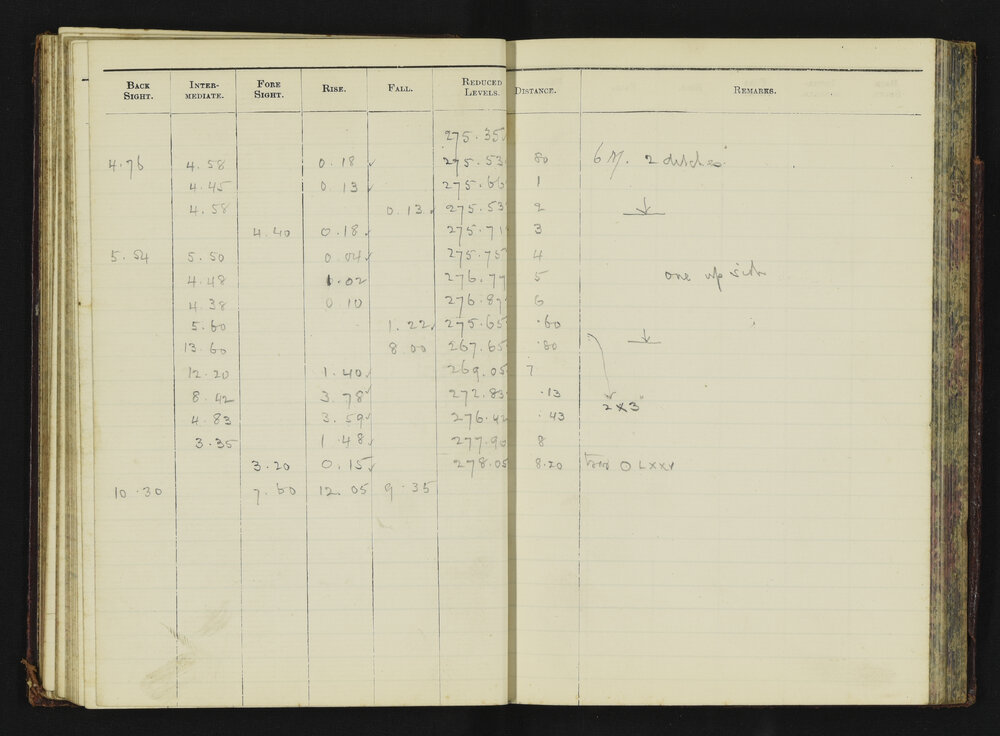 BACK SIGHT. INTER-MEDIATE. FORE SIGHT. RISE. FALL. REDUCED LEVELS. DISTANCE. REMARKS.
275.35
4.76 4.58 0.18 275.53 80 6 2 ditches
4.45 0.13 275.66 1
4.58 0.13 275.53 2
4.40 0.18 275.71 3
5.54 5.50 0.04 275.75 4
4.48 1.02 276.77 5 one up side
4.38 0.10 276.87 6
5.60 1.22 275.65 .60
13.60 8.00 267.65 .80
12.20 1.40 269.05 7
8.42 3.78 272.83 .13 2 x 3
4.83 3.59 276.42 .43
3.35 1.48 277.90 8
3.20 0.15 278.05 8.20 O LXXV
10.30 7.60 12.05 9.35